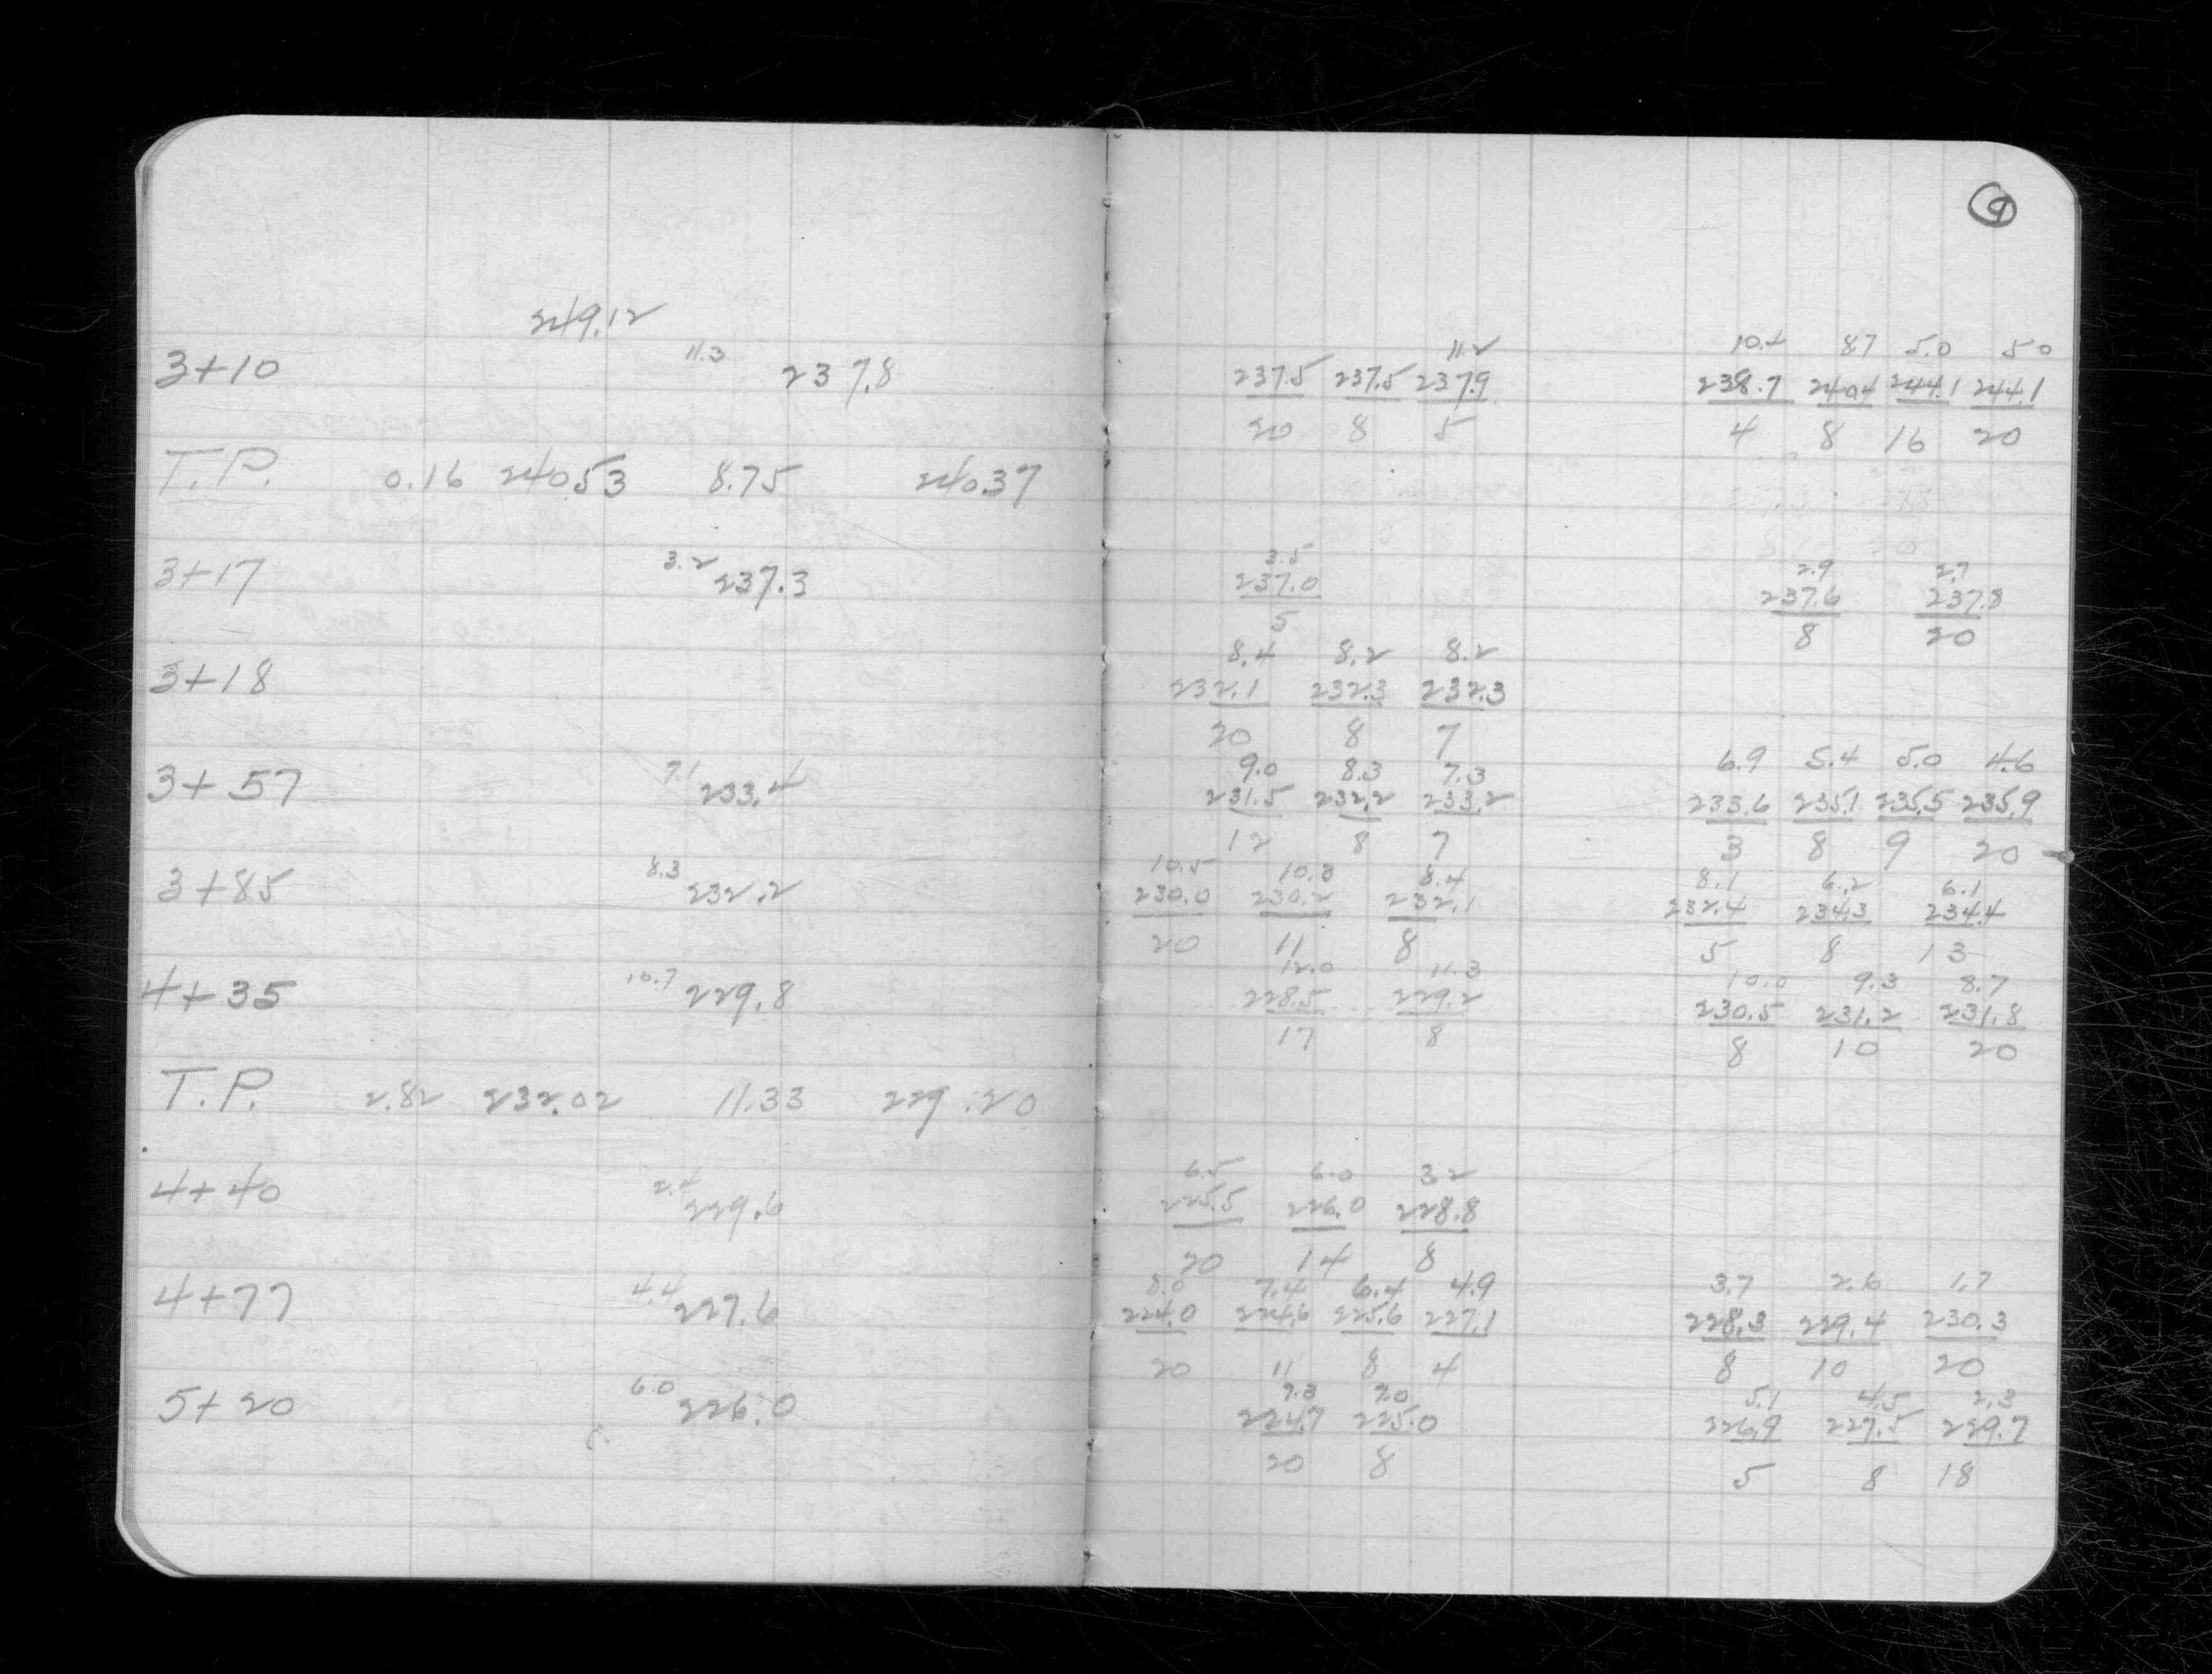 9
249.12
11.2 10.4 8.7 5.0 5.0
3+10 11.3 237.8 237.5 237.5 237.9 238.7 240.4 244.1 244.1
20 8 5 4 8 16 20
T.P. 0.16 240.53 8.75 240.37
3.5 2.9 2.7
3+17 3.2 237.3 237.0 237.6 237.8
5 8 20
8.4 8.2 8.2
3+18 232.1 232.3 232.3
20 8 7
9.0 8.3 7.3 6.9 5.4 5.0 4.6
3+57 7.1 233.4 231.5 232.2 233.2 233.6 235.1 235.5 235.9
12 8 7 3 8 9 20
10.5 10.3 8.4 8.1 6.2 6.1
3+85 8.3 232.2 230.0 230.2 232.1 232.4 234.3 234.4
20 11 8 5 8 13
12.0 11.3 10.0 9.3 8.7
4+35 10.7 229.8 228.5 229.2 230.5 231.2 231.8
17 8 8 10 20
T.P. 2.82 232.02 11.33 229.20
6.5 6.0 3.2
4+40 2.4 229.6 225.5 226.0 228.8
20 14 8
8.0 7.4 6.4 4.9 3.7 2.6 1.7
4+77 4.4 227.6 224.0 224.6 225.6 227.1 228.3 229.4 230.3
20 11 8 4 8 10 20
7.3 7.0 5.1 4.5 2.3
5+20 6.0 226.0 224.7 225.0 226.9 227.5 229.7
20 8 5 8 18